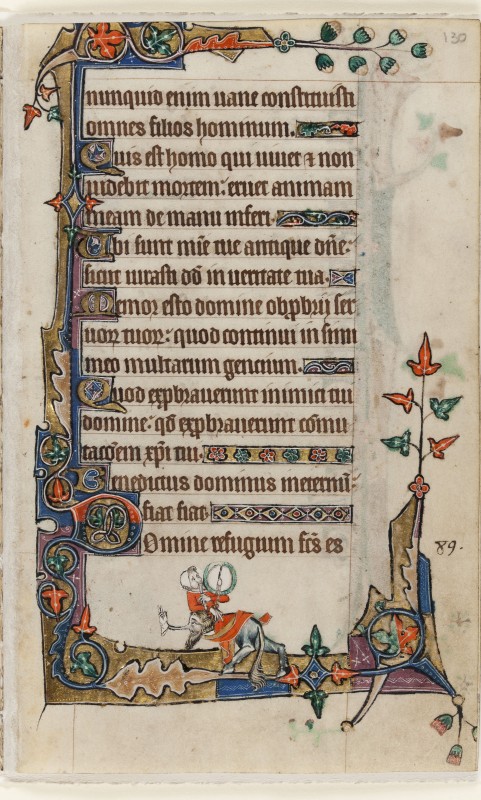 130
nunquid enim uane constituisti
omnes filios hominum.
Quis est homo qui uiuet & non
uidebit mortem: eruet animam
suam de manu inferi.
Ubi sunt mie tue antique dne:
sicut iurasti dd in ueritate tua.
Memor esto domine obprbrij ser
uorum tuorum: quod continui in sinu
meo multarum gencium.
Quod exprbrauerunt inimici tui
domine: qd exprbrauerunt comu
tacoem xpi tui.
Benedictus dominus ineternu
fiat fiat.
Domine refugium fcs es
89.